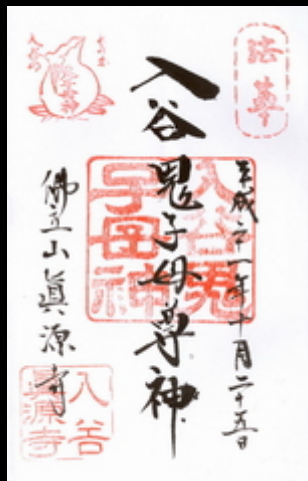 法華
平成二十一年十月二十五日
入谷鬼子母尊神
入谷鬼
子母神
佛立山眞源寺
入谷
眞源寺